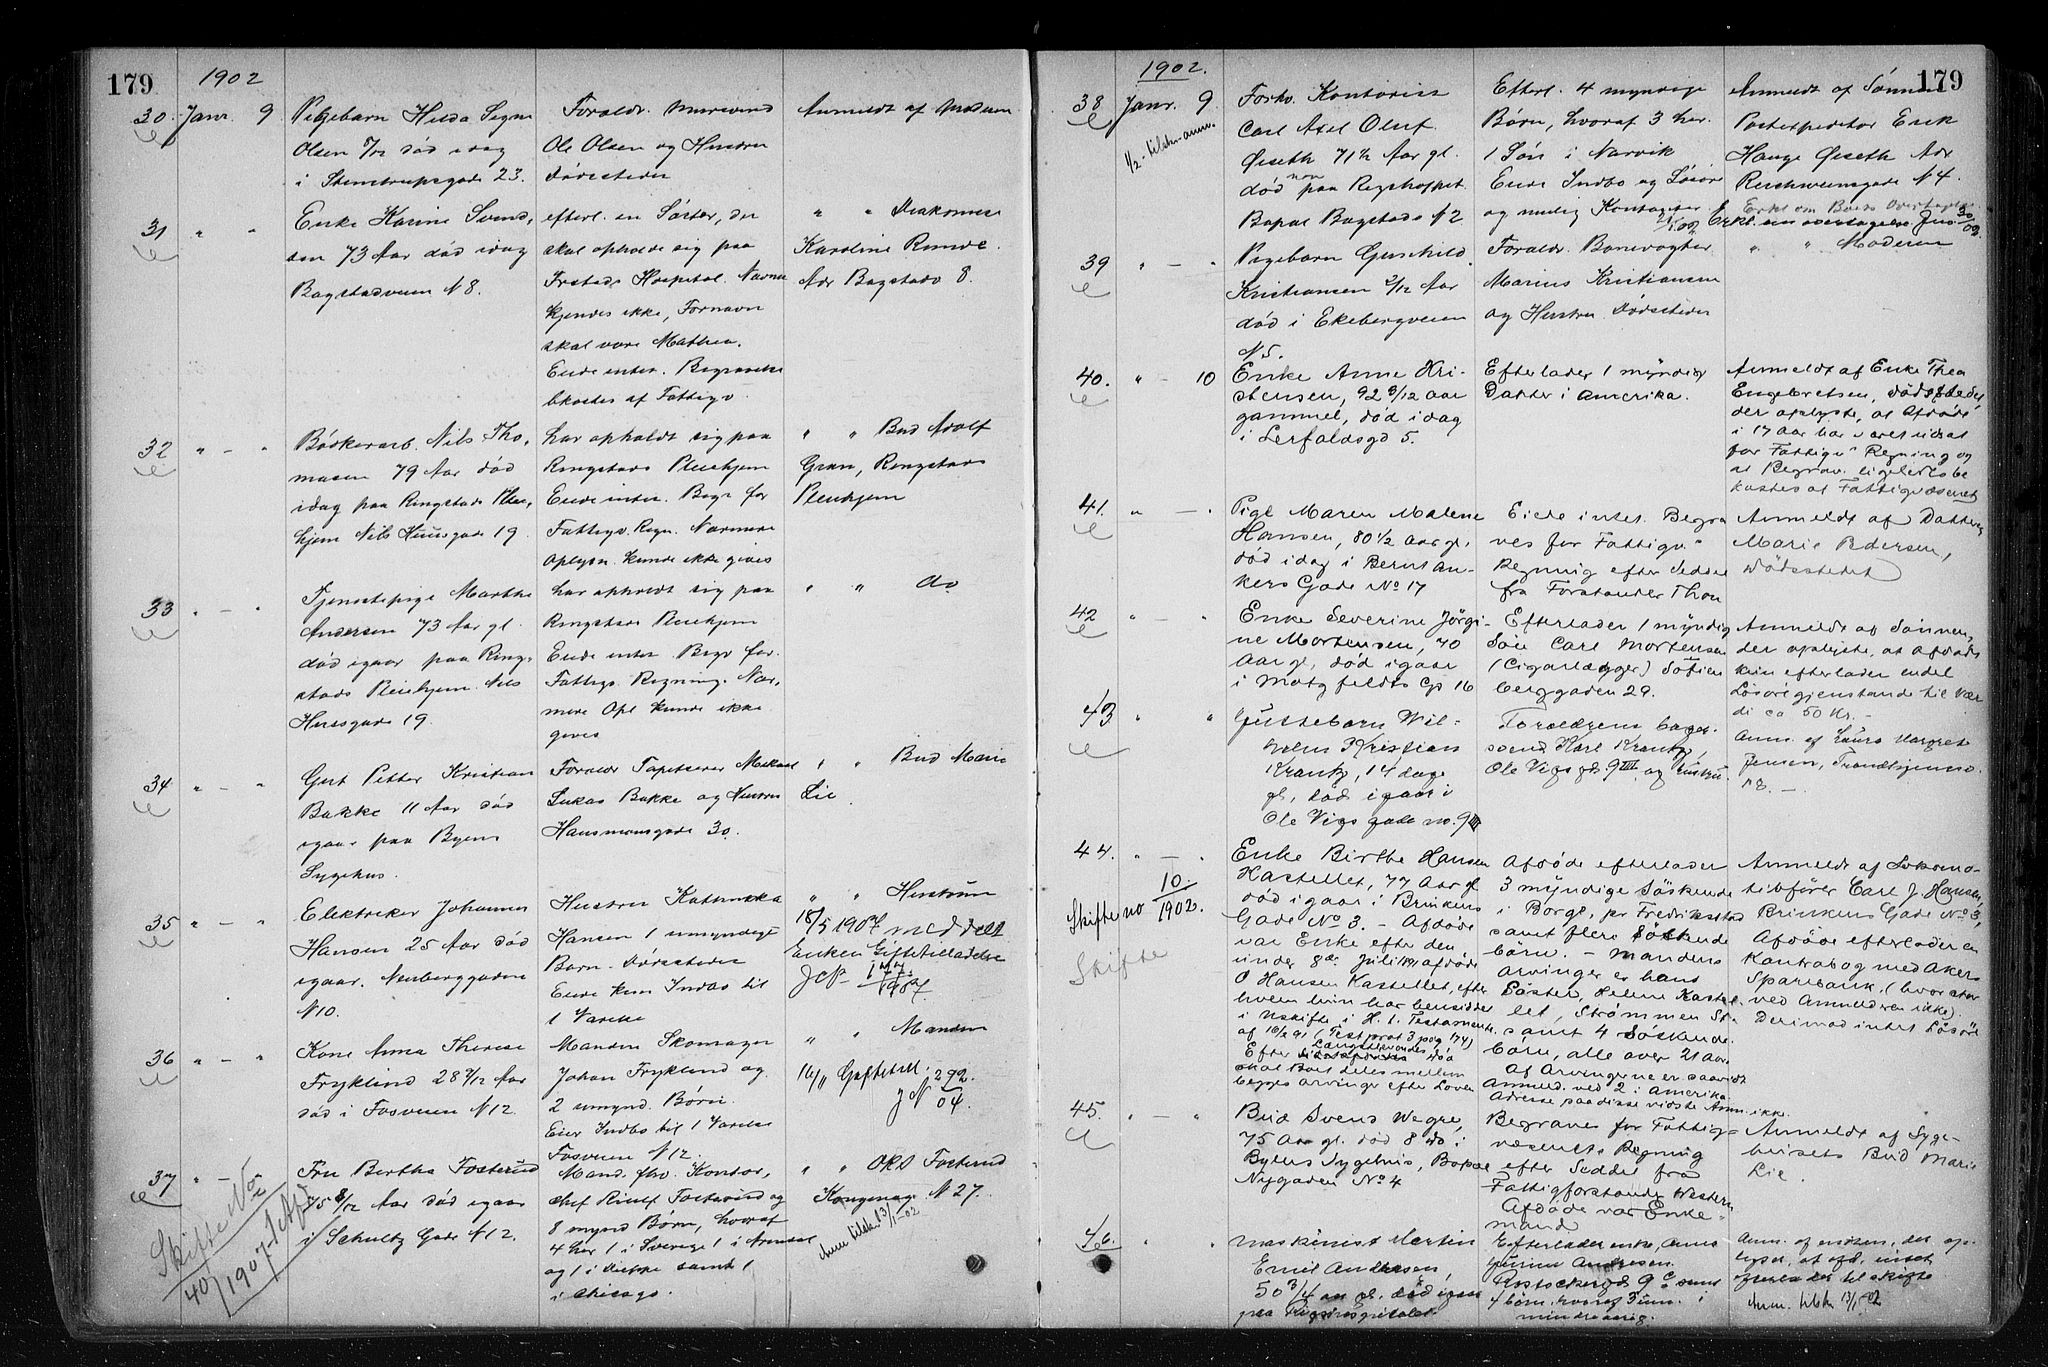 179
1902
30. Janr. 9
Pigebarn Hilda Signe
Olsen 7/12 død idag
i Stenstrupsgade 23.
Forældr. Murersvend
Ole Olsen og Hustru
Dødsstedet
Anmeldt af Moderen
31 " "
Enke Karine Svend-
sen 73 Aar død idag
Bogstadveien N 8.
efterl. en Søster, der
skal opholde sig paa
Hospital. Navnet
kjendes ikke, Fornavn
skal være Mathea.
Eiede intet. Begravelse
bekostes af Fattigv.
" " Diakonisse
Karoline Runde
Adr Bogstadv 8.
32 " - "
Nils Tho-
masen 79 Aar død
idag paa Ringstads Pleie-
hjem Nils Huusgade 19
har opholdt sig paa
Ringstads Pleiehjem
Eiede intet. Begr for
Fattigv. Regn. Nærmere
Oplysn. kunde ikke gives
" " Bud Adolf
Gran, Ringstads
Pleiehjem
33 " - "
Tjenestepige Marthe
Andersen 73 Aar gl.
død igaar paa Ring-
stads Pleiehjem Nils
Huusgade 19.
har opholdt sig paa
Ringstads Pleiehjem
Eiede intet. Begr for
Fattigv. Regning. Nær-
mere Opl kunde ikke
gives
" " do
34 " - "
Gut Petter Kristian
Bakke 11 Aar død
igaar paa Byens
Sygehus.
Forældr Tapetserer Mikael
Lukas Bakke og Hustru
Hausmannsgade 30.
" " Bud Marie
Lie.
35 " - "
Elektriker Johannes
Hansen 25 Aar død
igaar. Neuberggaden
N 10.
Hustru Kathinka
Hansen 1 umyndigt
Barn. Dødsstedet
Eiede kun Indbo til
1 Værelse
" " Hustruen
18/5 1907 meddelt
Enken Giftetilladelse
36 " - "
Kone Anna Therese
Fryklind 28 2/12 Aar
død i Fosveien N 12.
Manden Skomager
Johan Fryklund og
2 umynd. Børn.
Eier Indbo til 1 Værelse
Fosveien N 12.
" " Manden
16/11 Giftetill. 292
J N 04.
37 " -
Fru Bertha Fosterud
død igaar
i Schultz Gade N 12.
Mand. fhv. Kontor-
chef Rinlf Fosterud og
8 mynd Børn, hvoraf
4 her 1 i Sverige 1 i Arendal
og 1 i Dieppe samt 1
i Chicago.
" " OKS Fosterud
Kongensg. N 27.
Anm tilst. 13/1-02
Skifte No
40/1907 1 Afd
179
1902.
38 Janr. 9.
1/2 - tilst. anm.
Forhv. Kontorist
Carl Axel Oluf
Øiseth 71 1/2 Aar gl.
død paa Rigshospit.
Bopæl Bogstadv N 2
Efterl. 4 myndige
Børn, hvoraf 3 her.
1 Søn i Narvik
Eiede Indbo og Løsøre
og nulig Kontanter
Anmeldt af Sønnen
Postexpeditør Erik
Hauge Øiseth Adr
Reichweinsgade N 4.
Erkl om Boets Overtagelse
Erkl. om overtagelse Jnr. 30/02.
39 " - "
Pigebarn Gunhild
Kristiansen 2/12 Aar
død i Ekebergveien
N 5.
Forældr. Banevogter
Marius Kristiansen
og Hustru Dødsstedet
" " Moderen
40. " - 10
Enke Anne Kri-
stensen, 92 3/12 aar
gammel, død idag
i Lerfaldsgd 5.
Efterlader 1 myndig
Datter i Amerika.
Anmeldt af Enke Thea
Engebretsen, Dødsstedet
der oplyste, at Afdøde
i 17 Aar har været udsat
for Fattigv.s Regning og
at Begrav. ligeledes be
kostes af Fattigvæsenet
41. " - "
Pige Maren Malene
Hansen, 80 1/2 aar gl.
død idag i Bernt An-
kers Gade No 17
Eiede intet. Begra
ves for Fattigv.s
Regning efter Seddel
fra Forstander Thon
Anmeldt af Datteren
Marie Pedersen,
Dødsstedet
42 " - "
Enke Severine Jørgi-
ne Mortensen, 70
Aar gl, død igaar
i Motzfeldts Gd 16
Efterlader 1 myndig
Søn Carl Mortensen
(Cigarlægger) Sofien
berggaden 29.
Anmeldt af Sønnen,
der oplyste, at Afdøde
kun efterlader endel
Løsøregjenstande til vær
di ca 50 Kr. -
43 " "
Guttebarn Wil-
helm Kristian
Krantz, 14 dage
gl., død igaar i
Ole Vigs gade no. 9 III
Forældrene bager-
svend Karl Krantz,
Ole Vigs gd. 9 III og hustru
Anm. af Laura Margret
Jensen, Trondhjemsv.
18. -
44. " - "
10.
Skifte no 1902.
Skifte
Enke Birthe Hansen
Kastellet, 77 Aar gl
død igaar i Brinkens
Gade No 3. - Afdøde
var Enke efter den
under 8de Juli 1891 afdøde
O Hansen Kastellet, efter
hvem hun har hensiddet
i Uskifte i H. t. Testamente
af 16/2 91 (Test prot 3 pag 174)
Efter Længstlevendes død
skal Boet deles mellem
begges arvinger efter Loven
Afdøde efterlader
3 myndige Søskende
i Borge, pr Fredrikstad
samt flere Søskende
børn. - Mandens
Arvinger er hans
Søster, Helene Kastel-
let, Strømmen St.
samt 4 Søskende-
børn, alle over 21 aar.
Af Arvingerne er saavidt
Anmeld. ved 2 i Amerika
Adresse paa disse vidste Anm. ikke.
Anmeldt af Lokomo-
tivfører Carl J. Hansen,
Brinkens Gade No 3,
Afdøde efterlader en
Kontrabog med Akers
Sparebank, (hvor stor
ved Anmelderen ikke).
Derimod intet Løsøre
45. " - "
Bud Svend Wegre,
75 Aar gl. død 8 do i
Byens Sygehus, Bopæl
Nygaden No 4
Begraves for Fattig-
væsenets Regning
efter Seddel fra
Fattigforstander Western
Afdøde var Enke-
mand
Anmeldt af Syge-
husets Bud Marie
Lie.
46. " "
Maskinist Martin
Emil Andersen,
50 3/4 aar gl. død igaar
paa Rigshospitalet
Efterlader enke, Anna
Andresen.
Rostockergd 9 c samt
4 børn, hvoraf 3 um. i
mindreaarig.
Anm. af enken, der op-
lyser, at afd. intet
efterlader til skifte
Anm. tilst 13/1-02